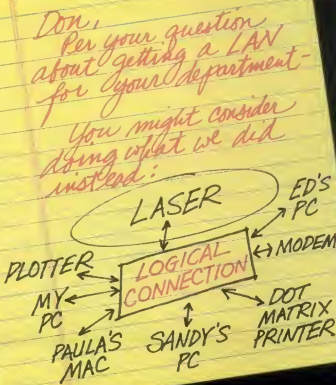 Don,
Per your question
about getting a LAN
for your department-
You might consider
doing what we did
instead:
LASER
ED'S
PC
PLOTTER
LOGICAL
CONNECTION
MODEM
MY
PC
DOT
MATRIX
PRINTER
PAULA'S
MAC
SANDY'S
PC